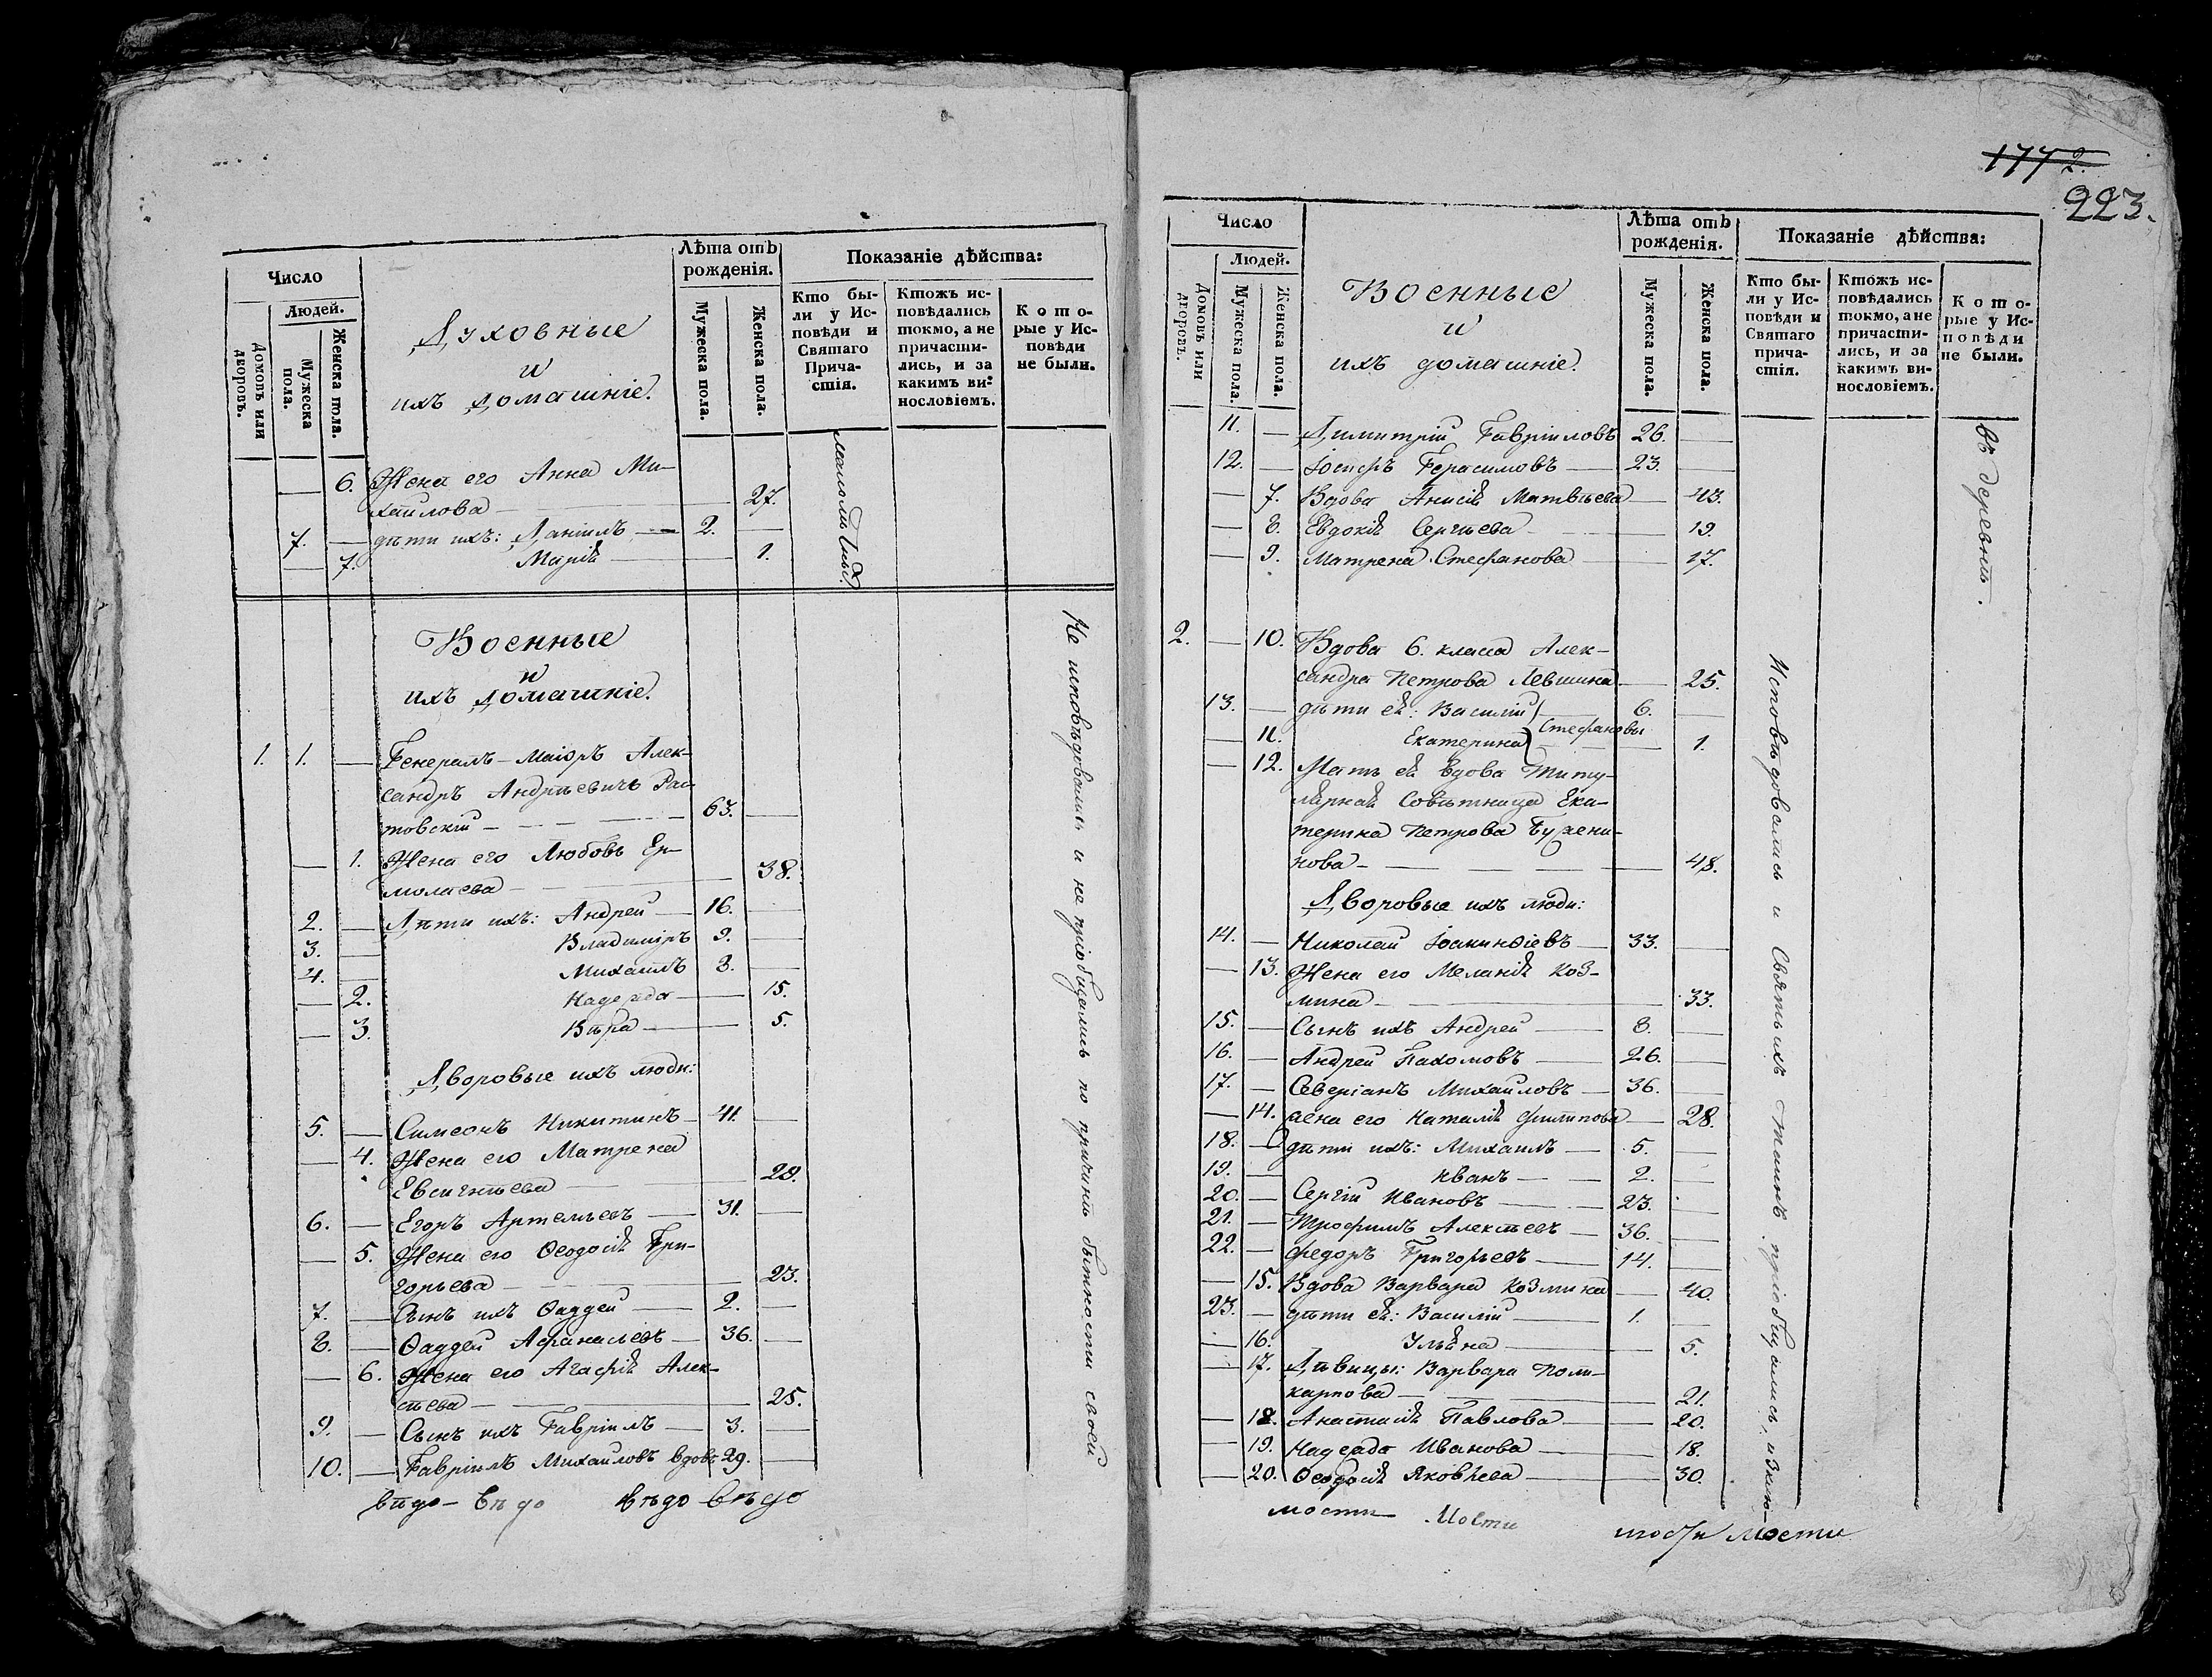 Число
Людей.
Домовъ или дворовъ.
Мужеска пола.
Женска пола.
Духовные
и
ихъ домашніе.
Лѣта отъ рожденія.
Мужеска пола.
Женска пола.
Показаніе дѣйства:
Кто бы-
ли у Ис-
повѣди и
Святаго
Прича-
стія.
Ктожъ ис-
повѣдались
токмо, а не
причасти-
лись, и за
какимъ ви-
нословіемъ.
Кото-
рые у Ис-
повѣди
не были.
6. Жена его Анна Ми-
хайлова 27.
7. дѣти ихъ: Даніилъ 2.
7. Марія 1.
Военные
и
ихъ домашніе.
1. 1. Генералъ-Маіоръ Алек-
сандръ Андреевичъ Рас-
товскій 63.
1. Жена его Любовь Ер-
молаева 38.
2. Дѣти ихъ: Андрей 16.
3. Владиміръ 9.
4. Михаилъ 8.
2. Надежда 15.
3. Вѣра 5.
Дворовые ихъ люди:
5. Симеонъ Никитинъ 41.
4. Жена его Матрена
Евсигнѣева 29.
6. Егоръ Артемьевъ 31.
5. Жена его Ѳеодосія Гри-
горьева 23.
7. Сынъ ихъ Ѳаддей 2.
8. Ѳаддей Афанасьевъ 36.
6. Жена его Агафія Алек-
сѣева 25.
9. Сынъ ихъ Гавріилъ 3.
10. Гавріилъ Михайловъ вдовъ 29.
Не исповѣдовались и не пріобщались по причинѣ бытности своей
вѣдо- вѣдо вѣдо вѣдо
1772.
223.
Число
Людей.
Домовъ или дворовъ.
Мужеска пола.
Женска пола.
Военные
и
ихъ домашніе.
Лѣта отъ рожденія.
Мужеска пола.
Женска пола.
Показаніе дѣйства:
Кто бы-
ли у Ис-
повѣди и
Святаго
прича-
стія.
Ктожъ ис-
повѣдались
токмо, а не
причасти-
лись, и за
какимъ ви-
нословіемъ.
Кото-
рые у Ис-
повѣди
не были.
11. Димитрій Гавріиловъ 26.
12. Іосифъ Герасимовъ 23.
7. Вдова Анисія Матвѣева 43.
8. Евдокія Сергѣева 19.
9. Матрена Стефанова 17.
въ деревнѣ.
2. 10. Вдова 6. класса Алек-
сандра Петрова Левшина 25.
13. дѣти ея: Василій 6.
Стефановы
11. Екатерина 1.
12. Мать ея вдова Титу-
лярная Совѣтница Ека-
терина Петрова Бужени-
нова 48.
Дворовые ихъ люди:
14. Николай Іоакинѳіевъ 33.
13. Жена его Меланія Коз-
мина 33.
15. Сынъ ихъ Андрей 8.
16. Андрей Пахомовъ 26.
17. Северіанъ Михайловъ 36.
14. жена его Наталія Филипова 28.
18. дѣти ихъ: Михаилъ 5.
19. Иванъ 2.
20. Сергій Ивановъ 23.
21. Трофимъ Алексѣевъ 36.
22. Федоръ Григорьевъ 14.
15. Вдова Варвара Козмина 40.
23. дѣти ея: Василій 1.
16. Ульяна 5.
17. Дѣвицы: Варвара Поли-
карпова 21.
18. Анастасія Павлова 20.
19. Надежда Иванова 18.
20. Ѳеодосія Яковлева 30.
Исповѣдовались и Святыхъ Таинъ пріобщались, исклю-
мости Мости мости мости